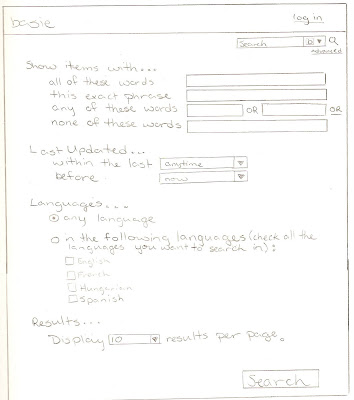 basie
log in
Search
advanced
Show items with...
all of these words
this exact phrase
any of these words OR OR
none of these words
Last Updated...
within the last anytime
before now
Languages...
any language
in the following languages (check all the
languages you want to search in):
English
French
Hungarian
Spanish
Results...
Display 10 results per page.
Search